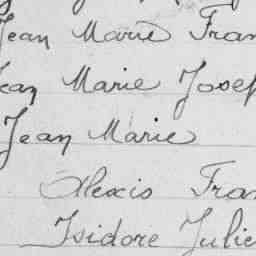 Jean Marie Fran
Jean Marie Josep
Jean Marie
Alexis Fran
Isidore Julie